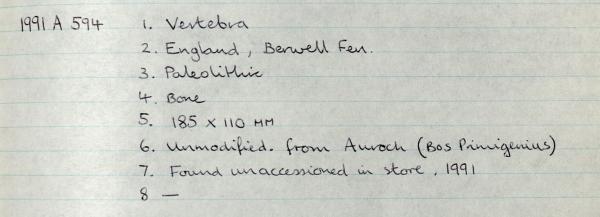 1991 A 594 1. Vertebra
2. England, Berwell Fen.
3. Paleolithic
4. Bone
5. 185 x 110 MM
6. Unmodified. from Auroch (Bos Primigenius)
7. Found unaccessioned in store, 1991
8 —